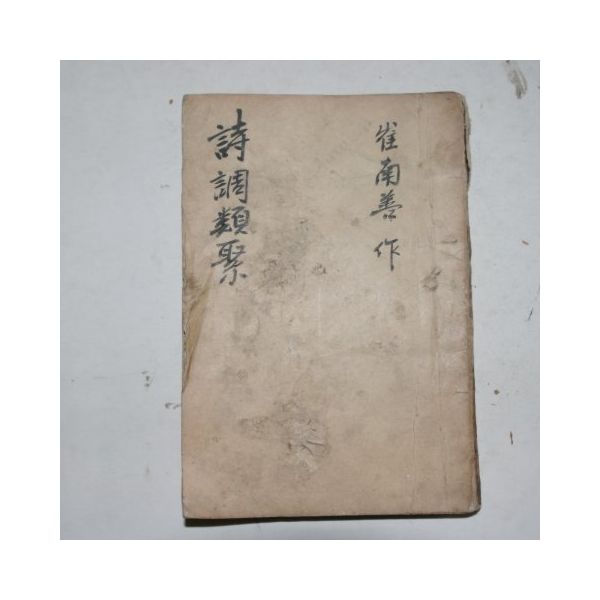 崔南善 作
詩調類聚